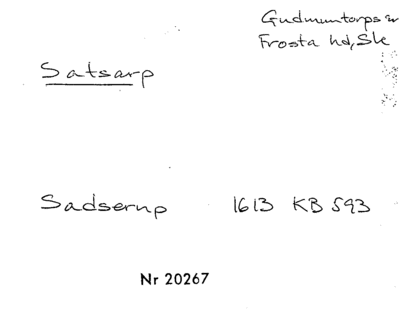 Gudmuntorps sn
Frosta hd, Sk
Satsarp
Sadserup 1613 KB 593
Nr 20267